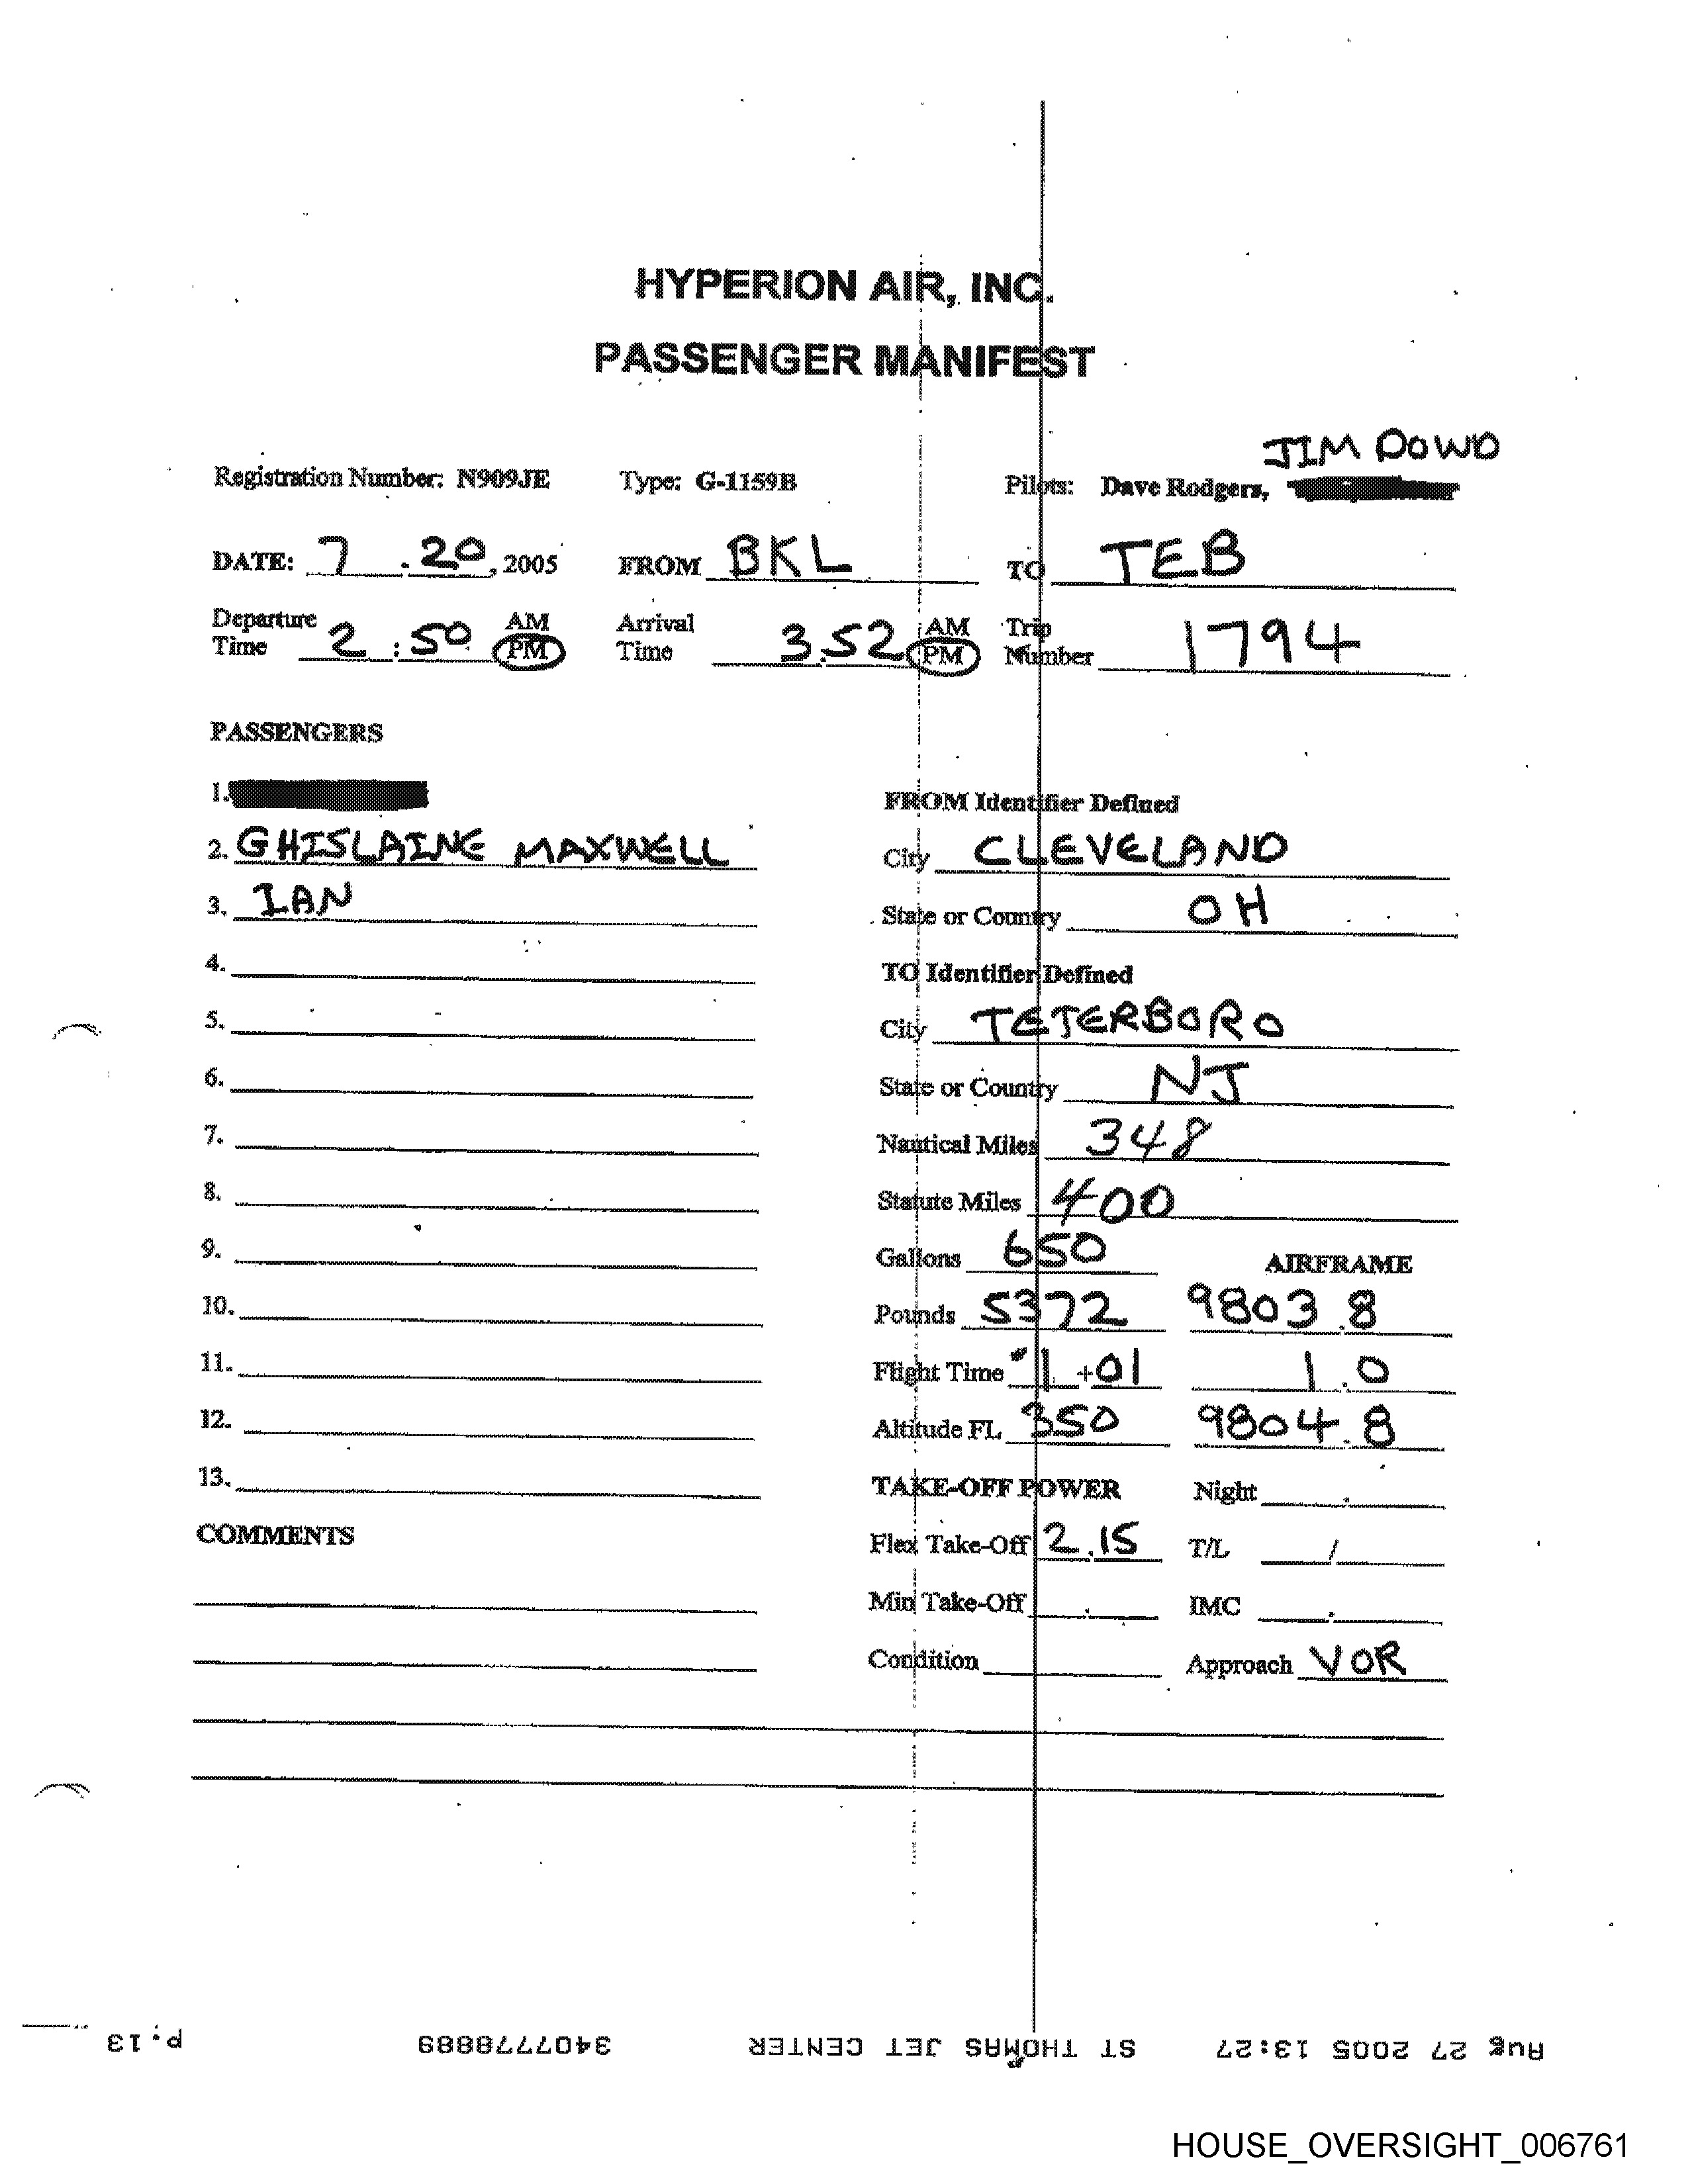 HYPERION AIR, INC.
PASSENGER MANIFEST
JIM DOWD
Registration Number: N909JE Type: G-1159B Pilots: Dave Rodgers,
DATE: 7 . 20, 2005 FROM BKL TO TEB
Departure Time 2 : 50 AM PM Arrival Time 3:52 AM PM Trip Number 1794
PASSENGERS
1.
FROM Identifier Defined
2. GHISLAINE MAXWELL
City CLEVELAND
3. IAN
State or Country OH
4.
TO Identifier Defined
5.
City TETERBORO
6.
State or Country NJ
7.
Nautical Miles 348
8.
Statute Miles 400
9.
Gallons 650 AIRFRAME
10.
Pounds 5372 9803.8
11.
Flight Time 1 + 01 1.0
12.
Altitude FL 350 9804.8
13.
TAKE-OFF POWER Night .
COMMENTS
Flex Take-Off 2.15 T/L /
Min Take-Off . IMC .
Condition Approach VOR
Aug 27 2005 13:27 ST THOMAS JET CENTER 3407778889 P.13
HOUSE_OVERSIGHT_006761